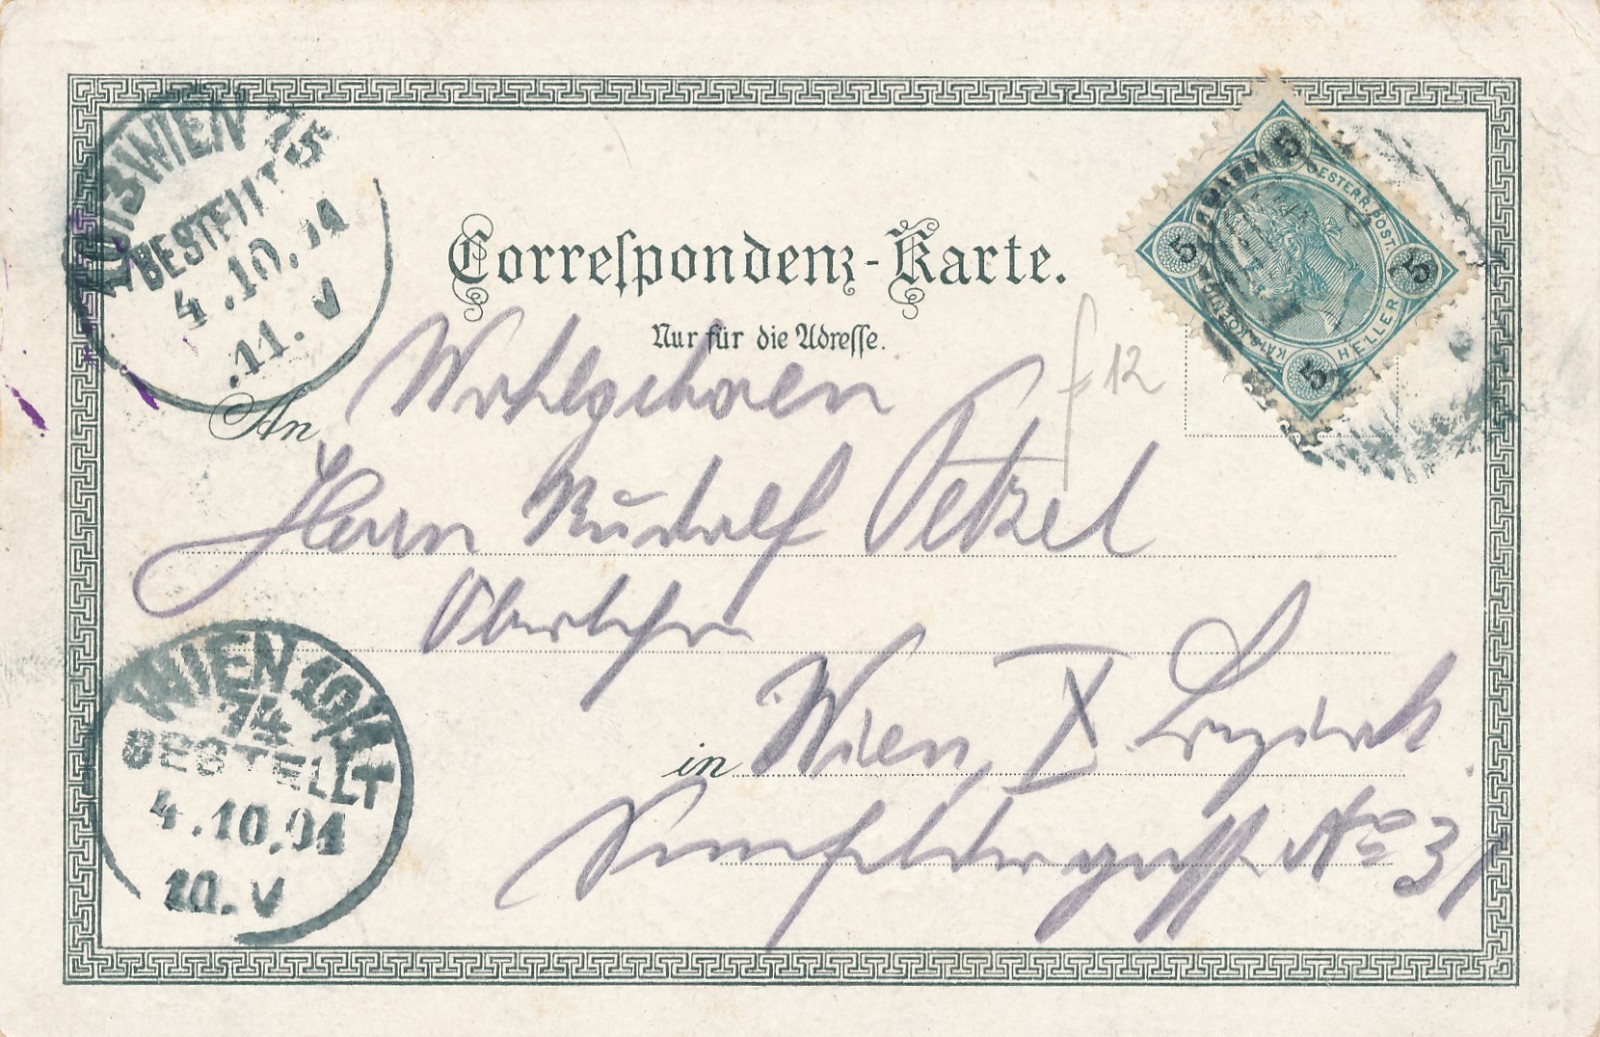 10/3 WIEN 75
BESTELLT
4.10.01
.11.V
Correspondenz-Karte.
Nur für die Adresse.
5
OESTERR. POST.
5
5
HELLER
5
f 12
An
Wohlgeboren
Herrn Rudolf Petzel
Oberlehrer
WIEN 10/1
74
BESTELLT
4.10.01
10.V
in Wien, X Bezirk.
No 31